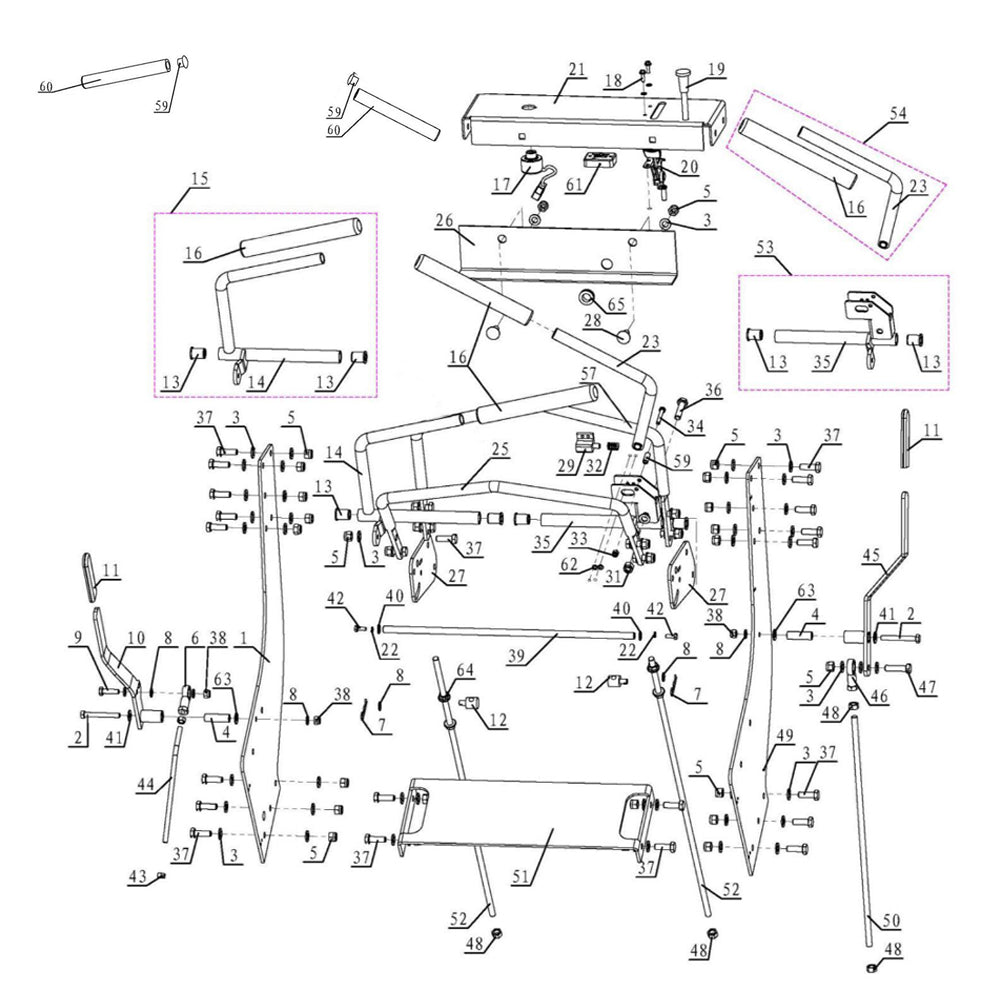 60 59 59 60 21 18 19 54
15 17 61 20 5 3 23 16
16 26 53
13 14 13 65 28 13 35 13
16 23 57 36
37 3 5 14 25 29 32 34 59 5 3 37 11
13 5 3 37 27 35 33 62 31 27 45
11 42 40 22 39 40 42 22 38 8 63 4 41 2
9 10 8 6 38 1 63 8 38 8 7 64 12 12 8 7 5 3 46 47
2 41 4 48
44 5 49 3 37
37 3 5 37 51 37
43 52 52 50
48 48 48